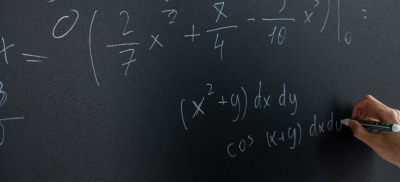 = 0 ( 2/7 x^7/2 + x/4 - 3/10 x^5 ) |_0 =
(x² + y) dx dy
cos (x+y) dx dy